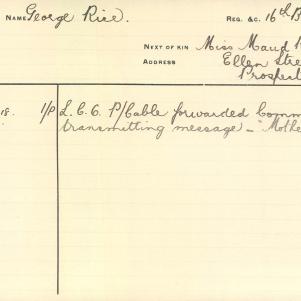 NAME George Rice. REG. &C. 16th B
NEXT OF KIN Miss Maud
ADDRESS Ellen Stre
Prospect
18. 1/P L.C.C. P/Cable forwarded Comm
transmitting message - "Mothe